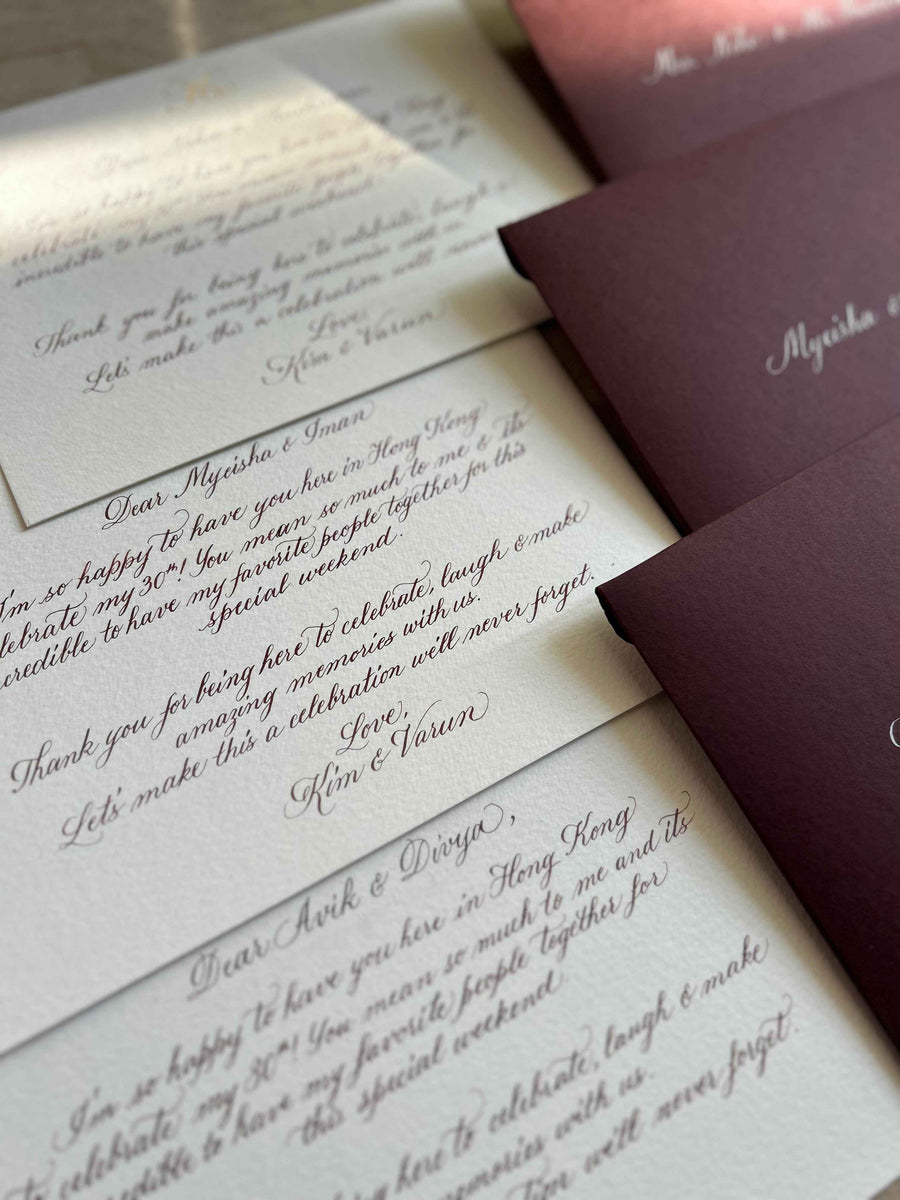 I'm so happy to have you here
celebrate my
incredible to have my favorite people together for
this special weekend.
Thank you for being here to celebrate, laugh &
make amazing memories with us.
Let's make this a celebration we'll never
Love,
Kim & Varun
Dear Myeisha & Iman
I'm so happy to have you here in Hong Kong
elebrate my 30th! You mean so much to me & its
credible to have my favorite people together for this
special weekend.
Thank you for being here to celebrate, laugh & make
amazing memories with us.
Let's make this a celebration we'll never forget.
Love,
Kim & Varun
Dear Avik & Divya,
I'm so happy to have you here in Hong Kong
to celebrate my 30th! You mean so much to me and its
redible to have my favorite people together for
this special weekend
ing here to celebrate, laugh & make
emories with us.
tion we'll never forget.
Myeisha &